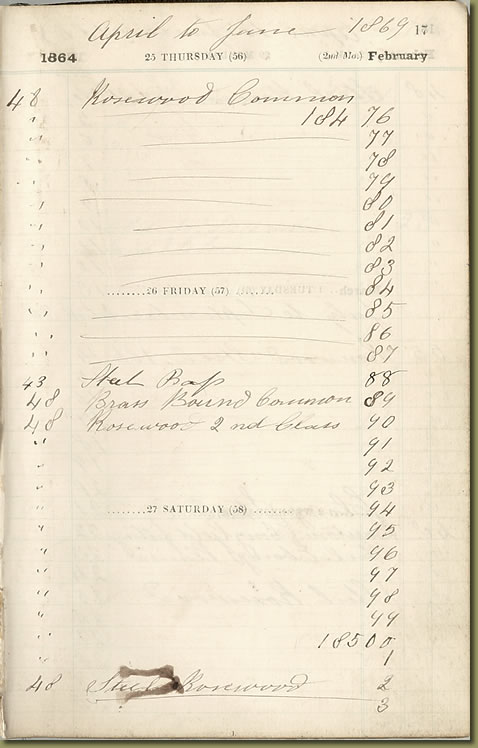 April to June 1869 17
1864 25 THURSDAY (56) (2nd Mo.) February
48 Rosewood Common
" 184 76
" 77
" 78
" 79
" 80
" 81
" 82
" 83
" 26 FRIDAY (57) 84
" 85
" 86
" 87
43 Steel Bass 88
48 Brass Bound Common 89
48 Rosewood 2nd Class 90
" 91
" 92
" 93
" 27 SATURDAY (58) 94
" 95
" 96
" 97
" 98
" 99
" 18500
" 1
48 Steel Rosewood 2
3